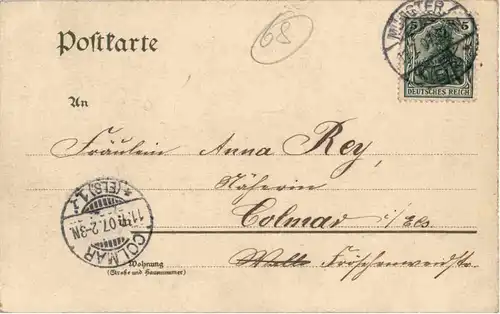 Postkarte
68
MÜNSTER
5 5
DEUTSCHES REICH
An
Fräulein Anna Rey,
Näherin
Colmar i/ Els.
Wohnung
(Straße und Hausnummer)
Fröschenweidstr.
COLMAR
07. 2-3N.
*(ELS.)1*